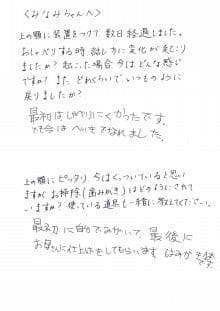 〈みなみちゃんへ〉
上の顎に装置をつけて数日経過しました。
おしゃべりする時 話し方に変化が起こり
ましたか? 起こった場合 今はどんな感じ
ですか? また、どれくらいで いつものように
戻りましたか?
最初はしゃべりにくかったです。
でも今は へいきでなれました。
上の顎に ピッタリ、今はくっついていると思い
ますが お掃除(歯みがき)はどのようにされて
いますか? 使っている道具も一緒に教えてください。
最初に自分でみがいて 最後に
お母さんに仕上げをしてもらいます はみがき
です